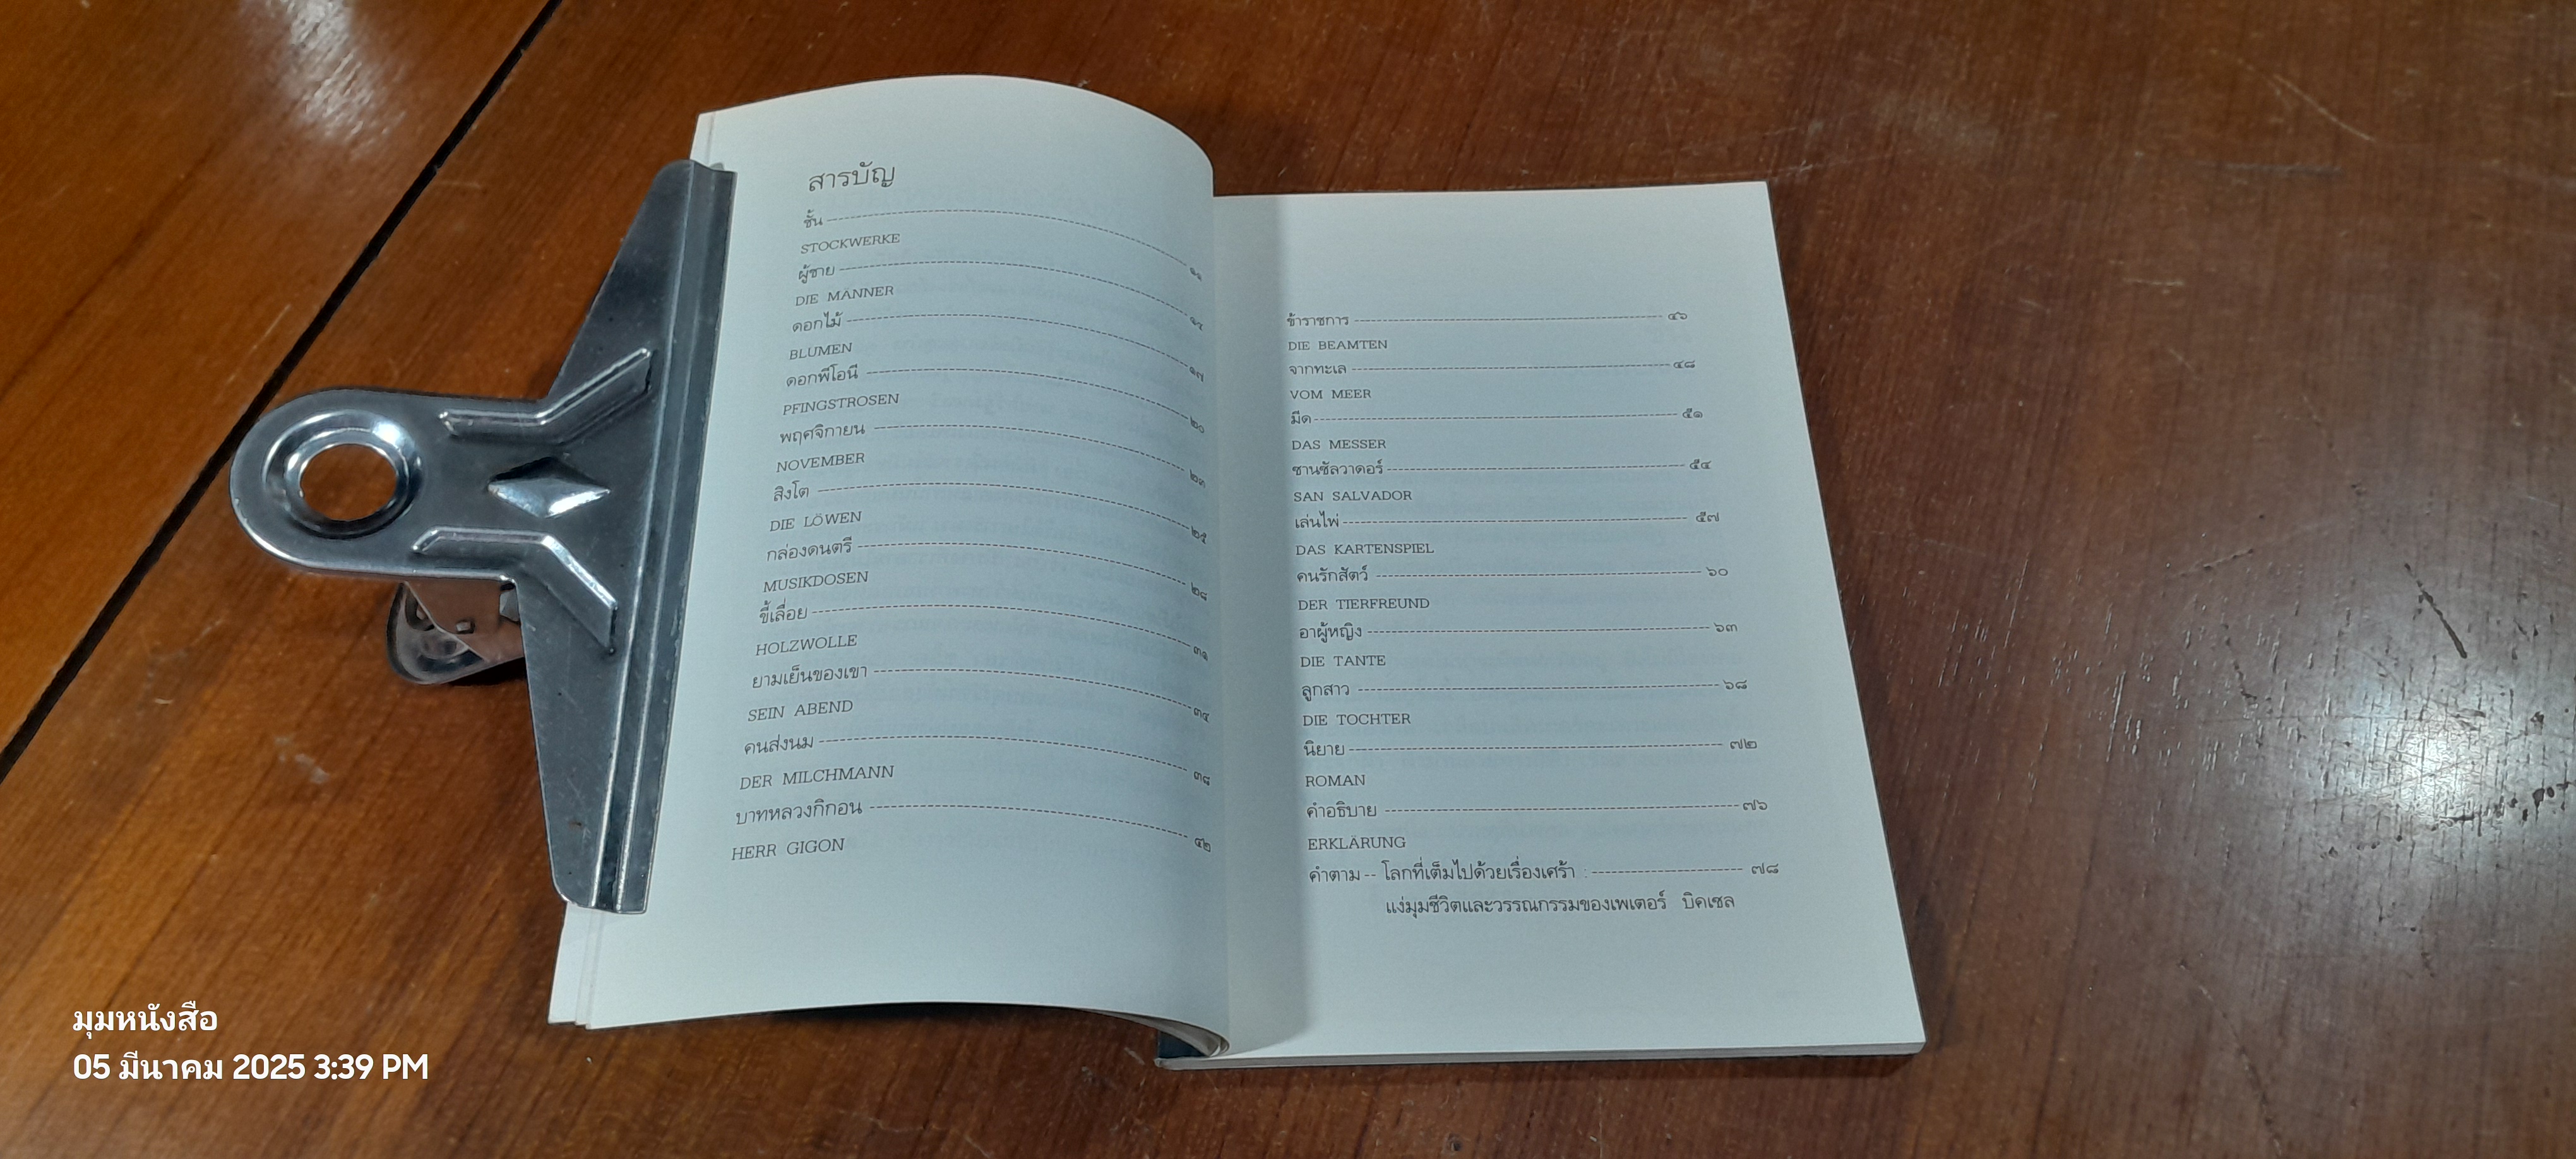 สารบัญ
ชั้น ---------- ๑๑
STOCKWERKE
ผู้ชาย ---------- ๑๔
DIE MÄNNER
ดอกไม้ ---------- ๑๗
BLUMEN
ดอกพีโอนี ---------- ๒๐
PFINGSTROSEN
พฤศจิกายน ---------- ๒๓
NOVEMBER
สิงโต ---------- ๒๕
DIE LÖWEN
กล่องดนตรี ---------- ๒๘
MUSIKDOSEN
ขี้เลื่อย ---------- ๓๑
HOLZWOLLE
ยามเย็นของเขา ---------- ๓๔
SEIN ABEND
คนส่งนม ---------- ๓๘
DER MILCHMANN
บาทหลวงกิกอน ---------- ๔๒
HERR GIGON
ข้าราชการ ---------- ๔๖
DIE BEAMTEN
จากทะเล ---------- ๔๘
VOM MEER
มีด ---------- ๕๑
DAS MESSER
ซานซัลวาดอร์ ---------- ๕๔
SAN SALVADOR
เล่นไพ่ ---------- ๕๗
DAS KARTENSPIEL
คนรักสัตว์ ---------- ๖๐
DER TIERFREUND
อาผู้หญิง ---------- ๖๓
DIE TANTE
ลูกสาว ---------- ๖๘
DIE TOCHTER
นิยาย ---------- ๗๒
ROMAN
คำอธิบาย ---------- ๗๖
ERKLÄRUNG
คำตาม -- โลกที่เต็มไปด้วยเรื่องเศร้า : ---------- ๗๘
แง่มุมชีวิตและวรรณกรรมของเพเตอร์ บิคเซล
มุมหนังสือ
05 มีนาคม 2025 3:39 PM